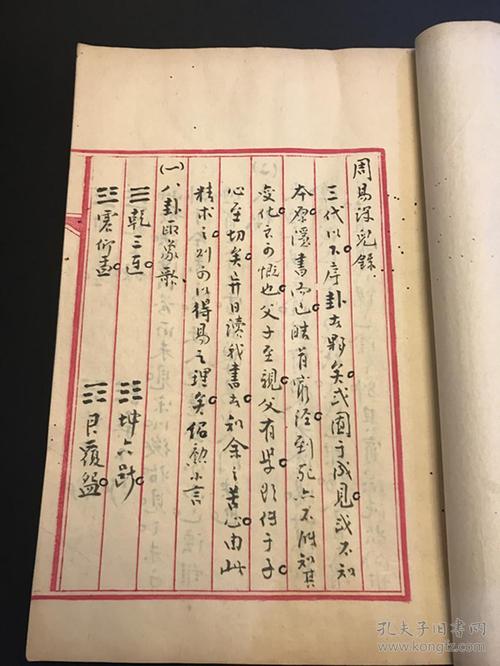 周易課兒錄
三代以下序卦者夥矣。或囿于成見。或不知
本原。漫書而已。皓首窮經。到死亦不能知其
變化。良可慨也。父子至親。父有學。欲傳于子。
心至切矣。异日讀我書者。知余之苦心。由此
精求之。則可以得易之理矣。小言
(一)八卦取象歌
☰乾三連。 ☷坤六斷。
☳震仰盂。 ☶艮覆盌。
孔夫子旧书网
www.kongfz.com